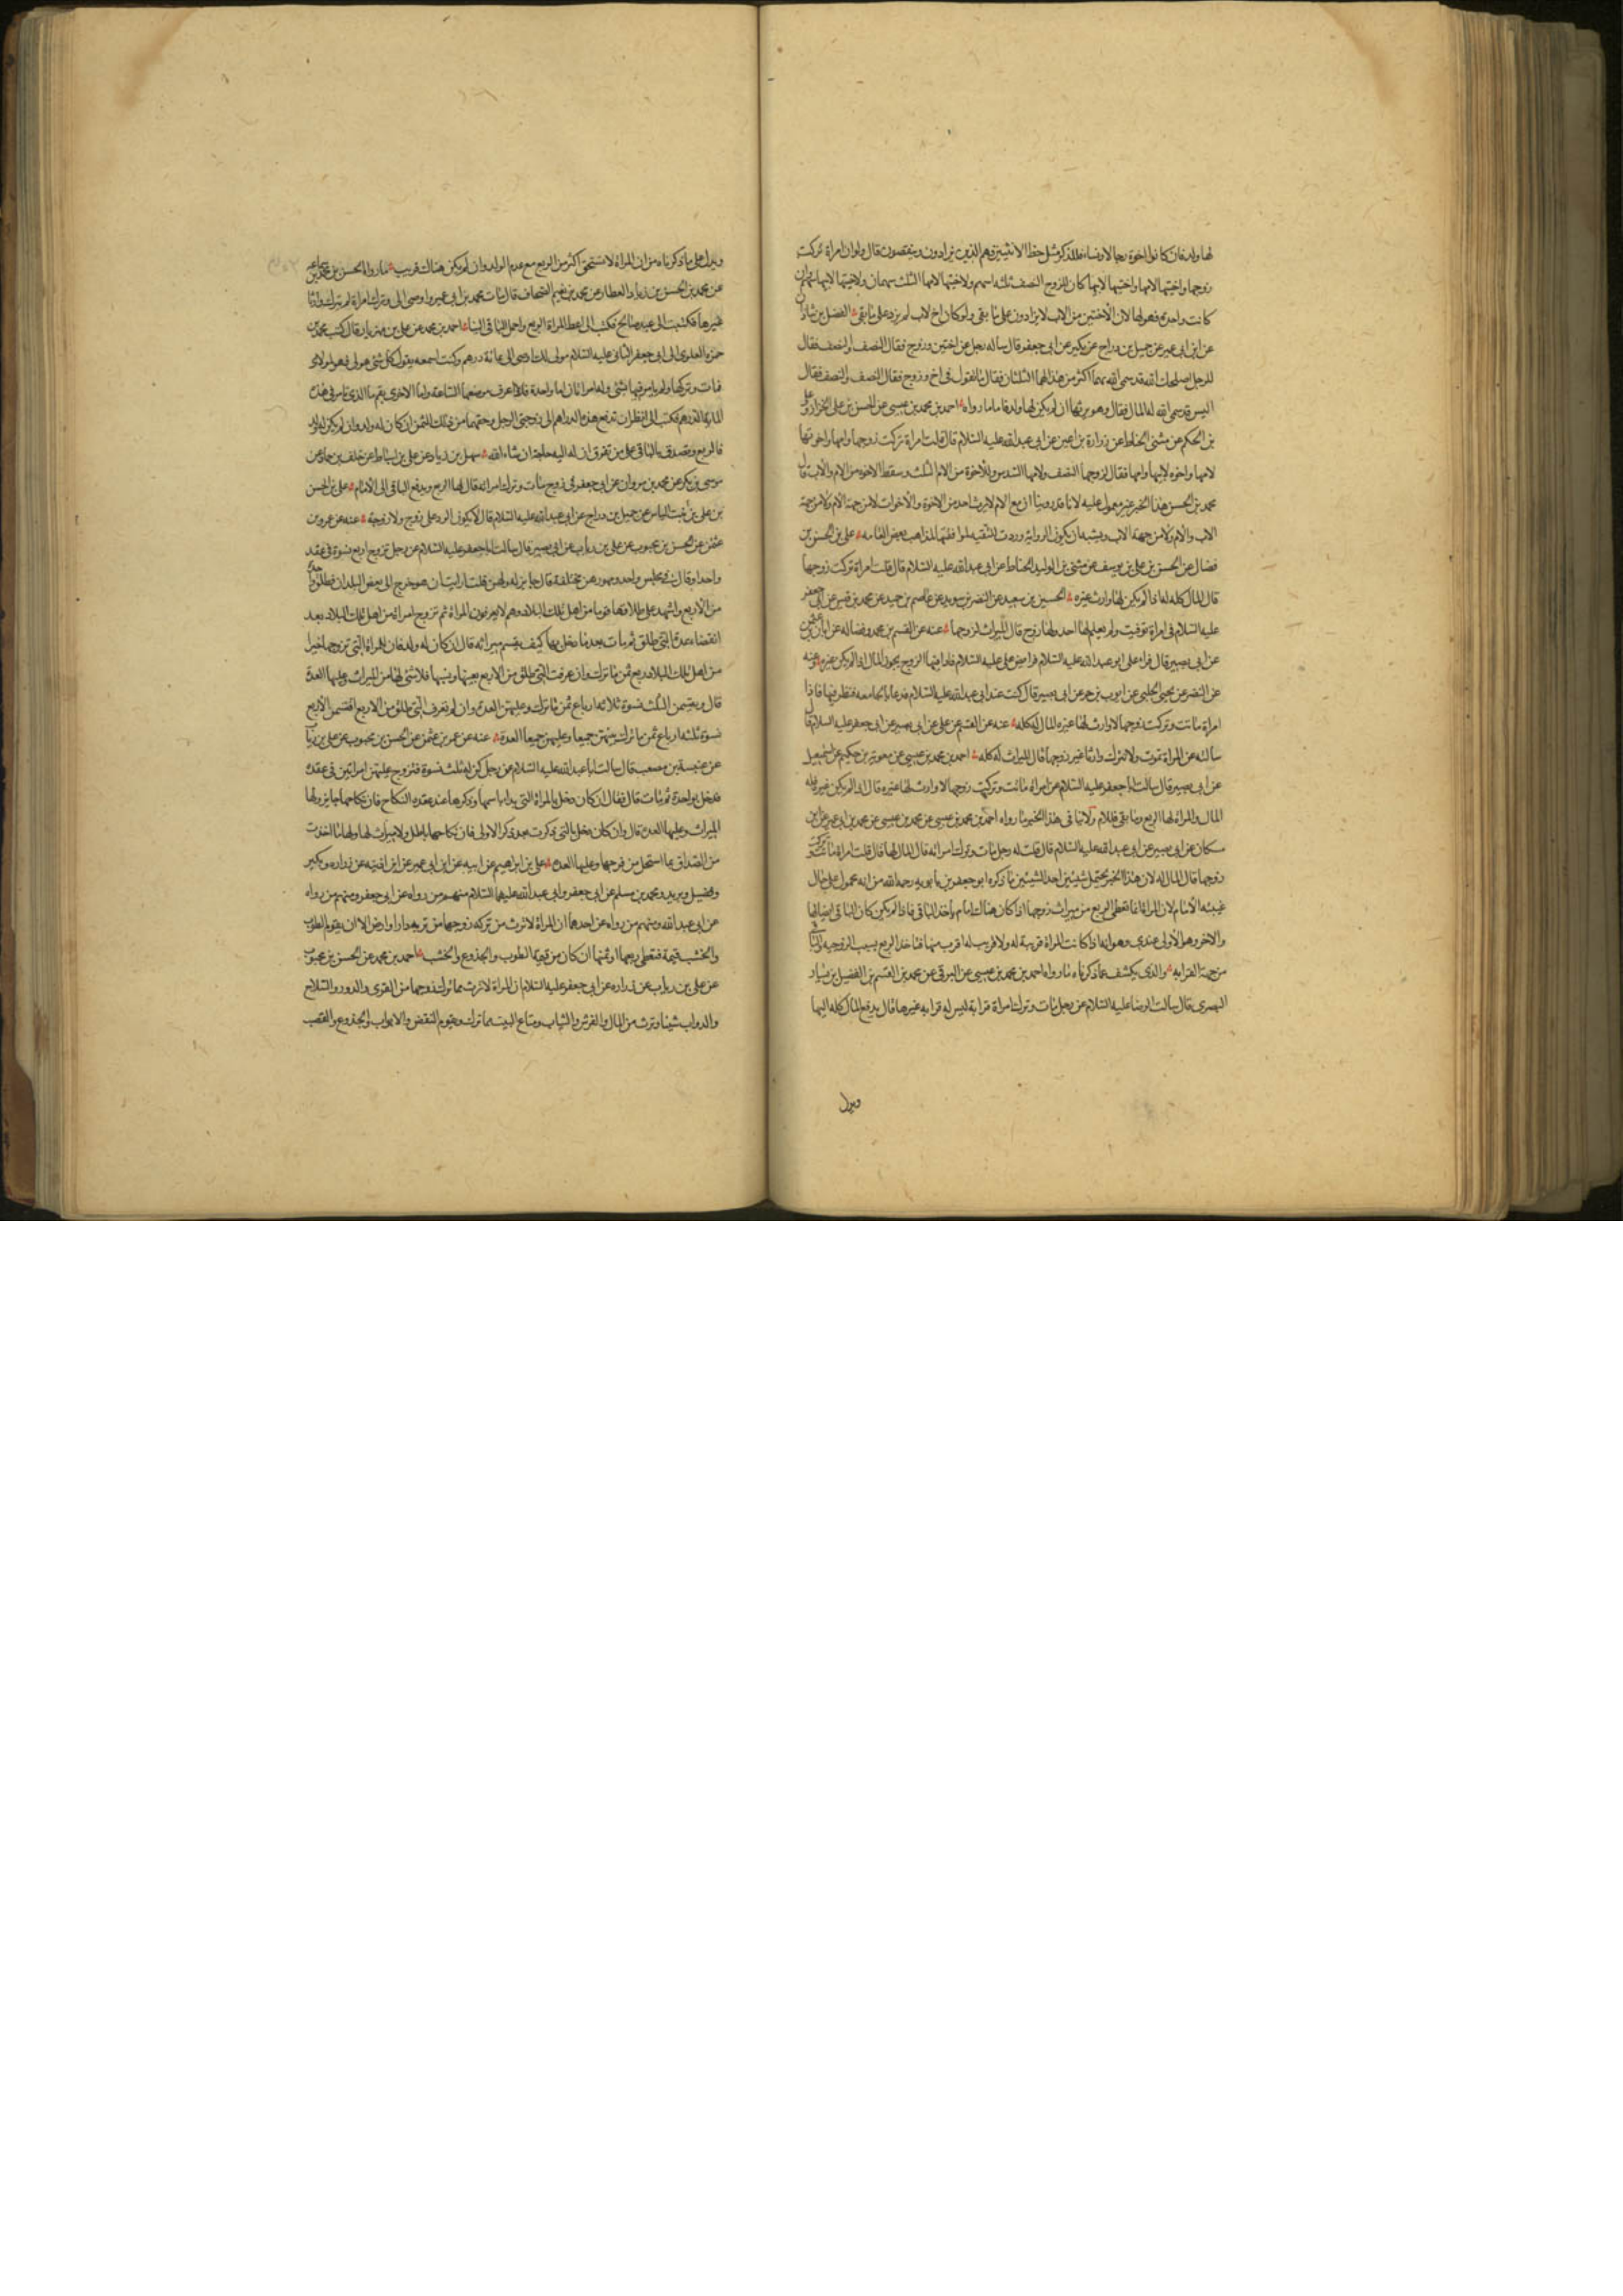 لها ولد فان كانوا اخوة رجالا ونساء فللذكر مثل حظ الانثيين فهم الذين يزادون وينقصون قال ولو ان امراة تركت
زوجها واختيها لامها واختيها لابيها كان للزوج النصف ثلثه اسهم ولاختيها لامها الثلث سهمان ولاختيها لابيها سهم وان
كانت واحدة فهو لها لان الاختين من الاب لا يزادون على ما بقى ولو كان اخ لاب لم يزد على ما بقى الفضل بن شاذان
عن ابن ابى عمير عن جميل بن دراج عن بكير عن ابى جعفر قال ساله رجل عن اختين وزوج فقال النصف والنصف فقال
للرجل اصلحك الله قد سمى الله لهما اكثر من هذا لهما الثلثان فقال ما تقول فى اخ وزوج فقال النصف والنصف فقال
اليس قد سمى الله له المال فقال وهو يرثها ان لم يكن لها ولد فاما ما رواه احمد بن محمد بن عيسى عن الحسن بن على الخزاز وعلى
بن الحكم عن مثنى الحناط عن زرارة بن اعين عن ابى عبد الله عليه السلام قال قلت امراة تركت زوجها وامها واخوتها
لامها واخوه لابيها وامها فقال لزوجها النصف ولامها السدس وللاخوة من الام الثلث وسقط الاخوه من الام والاب قال
محمد بن الحسن هذا الخبر غير معمول عليه لانا قد روينا ان مع الام لا يرث احد من الاخوة والاخوات لا من جهة الام ولا من جهة
الاب والام ولا من جهة الاب ويشبه ان يكون الرواية وردت للتقيه لموافقتها لمذاهب بعض العامه على بن الحسن بن
فضال عن الحسن بن على بن يوسف عن مثنى بن الوليد الحناط عن ابى عبد الله عليه السلام قال قلت امراة تركت زوجها
قال المال كله له اذا لم يكن لها وارث غيره الحسين بن سعيد عن النضر بن سويد عن عاصم بن حميد عن محمد بن قيس عن ابى جعفر
عليه السلام فى امراة توفيت ولم يعلم لها احد ولها زوج قال الميراث لزوجها عنه عن القسم بن محمد وفضاله عن ابان بن عثمن
عن ابى بصير قال قراء على ابو عبد الله عليه السلام فرايض على عليه السلام فاذا فيها الزوج يحوز المال اذا لم يكن غيره عنه
عن النضر عن يحيى الحلبى عن ايوب بن حر عن ابى بصير قال كنت عند ابى عبد الله عليه السلام فدعا بالجامعه فنظر فيها فاذا
امراة ماتت وتركت زوجها لا وارث لها غيره المال له كله عنه عن القسم عن على عن ابى بصير عن ابى جعفر عليه السلام قال
سالته عن المراة تموت ولا تترك وارثا غير زوجها قال الميراث له كله احمد بن محمد بن عيسى عن معوية بن حكيم عن اسمعيل
عن ابى بصير قال سالت ابا جعفر عليه السلام عن امراة ماتت وتركت زوجها لا وارث لها غيره قال اذا لم يكن غيره فله
المال والمراة لها الربع وما بقى فللامام ولا ينافى هذا الخبر ما رواه احمد بن محمد بن عيسى عن محمد بن عيسى عن محمد بن ابى عمير عن ابن
مسكان عن ابى بصير عن ابى عبد الله عليه السلام قال قلت له رجل مات وترك امراته قال المال لها قال قلت امراة ماتت وتركت
زوجها قال المال له لان هذا الخبر يحتمل شيئين احد الشيئين ما ذكره ابو جعفر بن بابويه رحمه الله من انه محمول على حال
غيبة الامام لان المراة انما تعطى الربع من ميراث زوجها اذا كان هناك امام ياخذ الباقى فاذا لم يكن كان الباقى ايضا لها
والاخر وهو الاولى عندى وهو انه اذا كانت المراة قريبة له ولا قريب له اقرب منها فتاخذ الربع بسبب الزوجيه والباقى
من جهة القرابه والذى يكشف عما ذكرناه ما رواه احمد بن محمد بن عيسى عن البرقى عن محمد بن القسم بن الفضيل بن يسار
البصرى قال سالت الرضا عليه السلام عن رجل مات وترك امراة قرابة ليس له قرابه غيرها قال يدفع المال كله اليها
ويدل
ويدل على ما ذكرناه من ان المراة لا تستحق اكثر من الربع مع عدم الولد وان لم يكن هناك قريب ما رواه الحسن بن محمد بن سماعه
عن محمد بن الحسن بن زياد العطار عن محمد بن نعيم الصحاف قال مات محمد بن ابى عمير واوصى الى وترك امراة لم يترك وارثا
غيرها فكتبت الى عبد صالح فكتب الى اعط المراة الربع واحمل الباقى الينا احمد بن محمد عن على بن مهزيار قال كتب محمد بن
حمزه العلوى الى ابى جعفر الثانى عليه السلام مولى لك اوصى الى بمائة درهم وكنت اسمعه يقول كل شئ هو لى فهو لمولاى
فمات وتركها ولم يامر فيها بشئ وله امراتان اما واحدة فلا اعرف موضعها الساعة واما الاخرى بقم ما الذى تامر فى هذه
المائة الدرهم فكتب الى انظر ان تدفع هذه الدراهم الى زوجتى الرجل وحقهما من ذلك الثمن ان كان له ولد وان لم يكن له ولد
فالربع وتصدق بالباقى على من تعرف ان له اليه حاجة ان شاء الله سهل بن زياد عن على بن اسباط عن خلف بن حماد عن
موسى بن بكر عن محمد بن مروان عن ابى جعفر فى زوج مات وترك امراته قال لها الربع ويدفع الباقى الى الامام على بن الحسن
بن على بن بنت الياس عن جميل بن دراج عن ابى عبد الله عليه السلام قال لا يكون الرد على زوج ولا زوجة عنه عن عمرو بن
عثمن عن الحسن بن محبوب عن على بن رياب عن ابى بصير قال سالت ابا جعفر عليه السلام عن رجل تزوج اربع نسوة فى عقد
واحد او قال فى مجلس واحد ومهورهن مختلفة قال جايز له ولهن قلت ارايت ان هو خرج الى بعض البلدان فطلق واحدة
من الاربع واشهد على طلاقها قوما من اهل تلك البلاد وهم لا يعرفون المراة ثم تزوج امراة من اهل تلك البلاد بعد
انقضاء عدة التى طلق ثم مات بعد ما دخل بها كيف يقسم ميراثه قال ان كان له ولد فان للمراة التى تزوجها اخيرا
من اهل تلك البلاد ربع ثمن ما ترك وان عرفت التى طلق من الاربع بعينها ونسبها فلا شئ لها من الميراث وعليها العدة
قال ويقتسمن الثلث نسوة ثلاثه ارباع ثمن ما ترك وعليهن العدة وان لم تعرف التى طلق من الاربع اقتسمن الاربع
نسوة ثلثه ارباع ثمن ما ترك بينهن جميعا وعليهن جميعا العدة عنه عن عمر بن عثمن عن الحسن بن محبوب عن على بن رياب
عن عنبسة بن مصعب قال سالت ابا عبد الله عليه السلام عن رجل كن له ثلث نسوة فتزوج عليهن امراتين فى عقدة
فدخل بواحدة ثم مات قال فقال ان كان دخل بالمراة التى بدا باسمها وذكرها عند عقدة النكاح فان نكاحها جايز ولها
الميراث وعليها العدة قال وان كان دخل بالتى ذكرت بعد ذكر الاولى فان نكاحها باطل ولا ميراث لها ولها ما اخذت
من الصداق بما استحل من فرجها وعليها العدة على بن ابراهيم عن ابيه عن ابن ابى عمير عن ابن اذينه عن زراره وبكير
وفضيل وبريد ومحمد بن مسلم عن ابى جعفر وابى عبد الله عليهما السلام منهم من رواه عن ابى جعفر ومنهم من رواه
عن ابى عبد الله ومنهم من رواه عن احدهما ان المراة لا ترث من تركة زوجها من تربة دار او ارض الا ان يقوم الطوب
والخشب قيمة فتعطى ربعها او ثمنها ان كان من قيمة الطوب والجذوع والخشب احمد بن محمد عن الحسن بن محبوب
عن على بن رياب عن زراره عن ابى جعفر عليه السلام ان المراة لا ترث مما ترك زوجها من القرى والدور والسلاح
والدواب شيئا وترث من المال والفرش والثياب ومتاع البيت مما ترك ويقوم النقض والابواب والجذوع والقصب